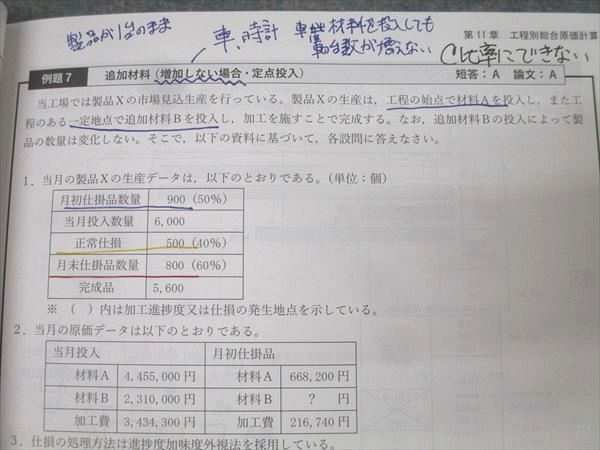 製品が1台のまま
車、時計 車に材料を投入しても
台数が増えない
第11章 工程別総合原価計算
比率にできない
例題7 追加材料(増加しない場合・定点投入) 短答:A 論文:A
当工場では製品Xの市場見込生産を行っている。製品Xの生産は,工程の始点で材料Aを投入し,また工
程のある一定地点で追加材料Bを投入し,加工を施すことで完成する。なお,追加材料Bの投入によって製
品の数量は変化しない。そこで,以下の資料に基づいて,各設問に答えなさい。
1.当月の製品Xの生産データは,以下のとおりである。(単位:個)
月初仕掛品数量 900(50%)
当月投入数量 6,000
正常仕損 500(40%)
月末仕掛品数量 800(60%)
完成品 5,600
※ ( )内は加工進捗度又は仕損の発生地点を示している。
2.当月の原価データは以下のとおりである。
当月投入 月初仕掛品
材料A 4,455,000円 材料A 668,200円
材料B 2,310,000円 材料B ? 円
加工費 3,434,300円 加工費 216,740円
3.仕損の処理方法は進捗度加味度外視法を採用している。